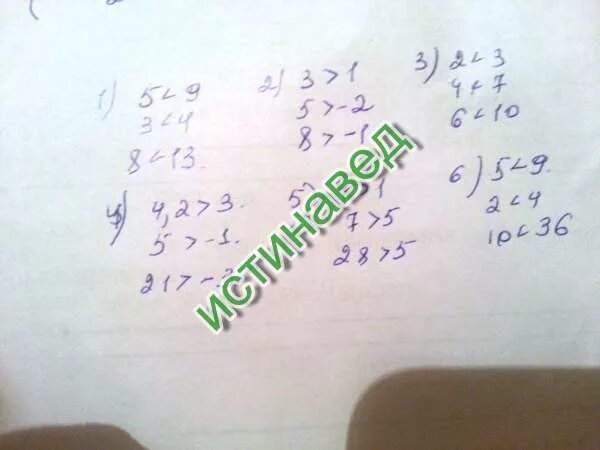 1) 5 < 9
3 < 4
8 < 13.
2) 3 > 1
5 > -2
8 > -1
3) 2 < 3
4 < 7
6 < 10
4) 4,2 > 3.
5 > -1.
21 > -3
5) > 1
7 > 5
28 > 5
6) 5 < 9.
2 < 4
10 < 36
истинавед